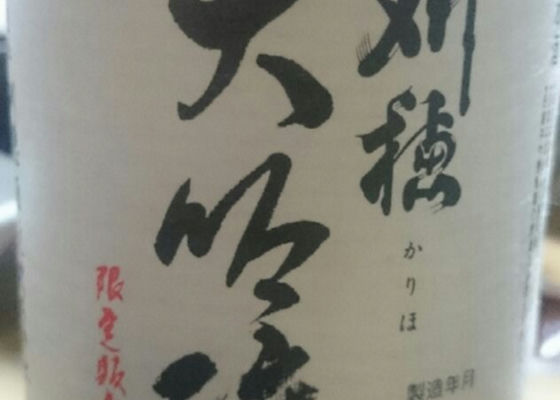 刈穂
かりほ
大吟
限定販
製造年月